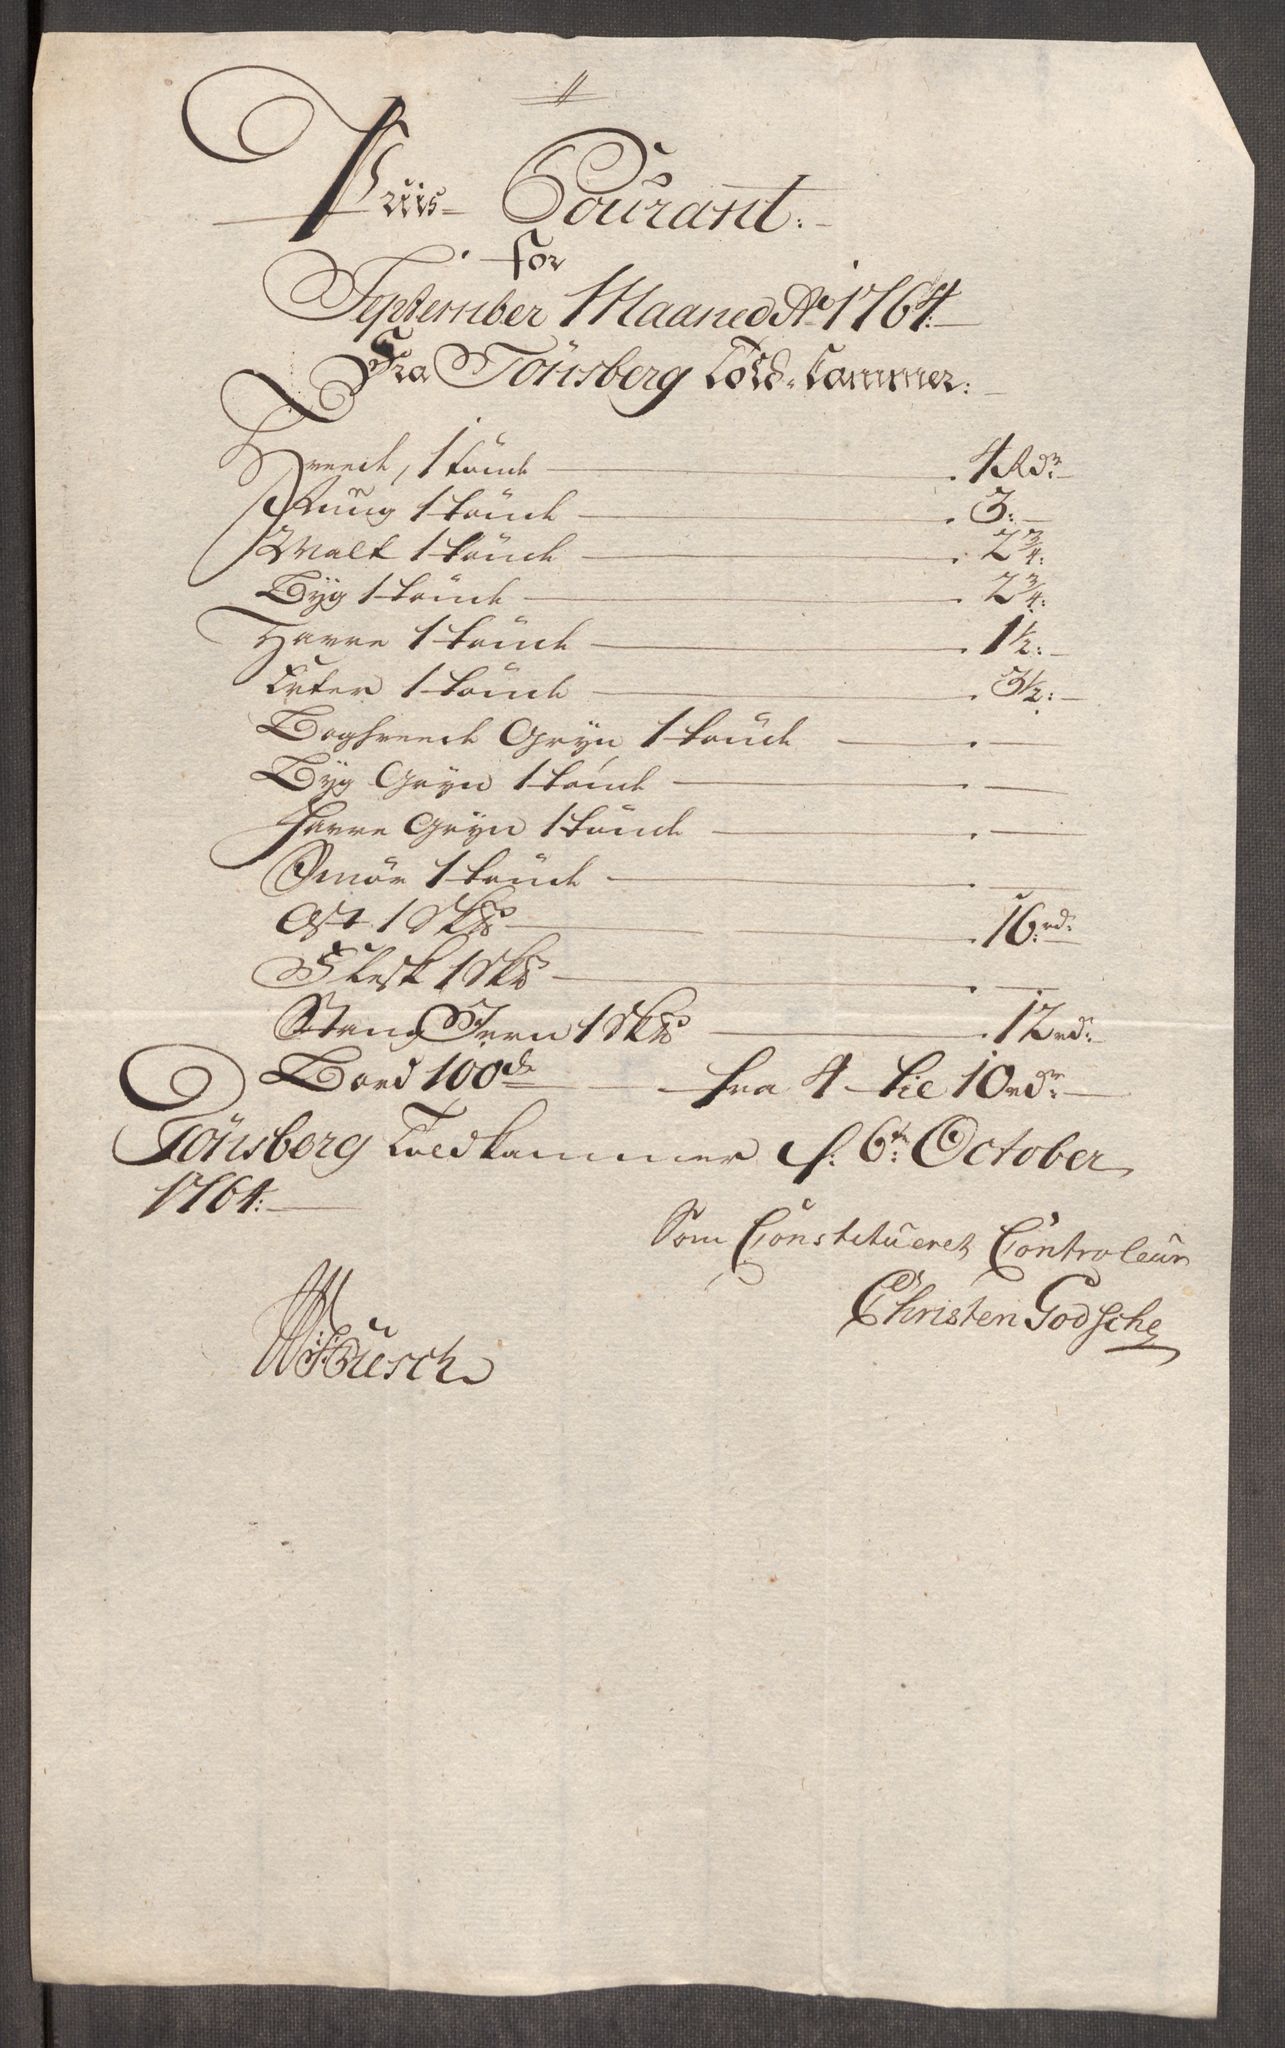 Priis-Courant:
for
September Maaned Ao 1764:
Fra Tönsberg Told-Cammer:
Hveede, 1 tönde 4 Rdr:
Rug 1 tönde 3:
Malt 1 tönde 2 3/4:
Byg 1 tönde 2 3/4:
Havre 1 tönde 1 1/2:
Erter 1 tönde 3 1/2:
Boghveede Gryn 1 tönde
Byg Gryn 1 tönde
Havre Gryn 1 tönde
Smör 1 tönde
Ost 1 Sk℔ 16 rd:
Flesk 1 Sk℔
Stang Jern 1 Sk℔ 12 rd:
Bord 100de fra 4 til 10 rdr:
Tönsberg Toldkammer d: 6te: October
1764:
Som Constitueret Controleur
Christen Godsche
Büsch